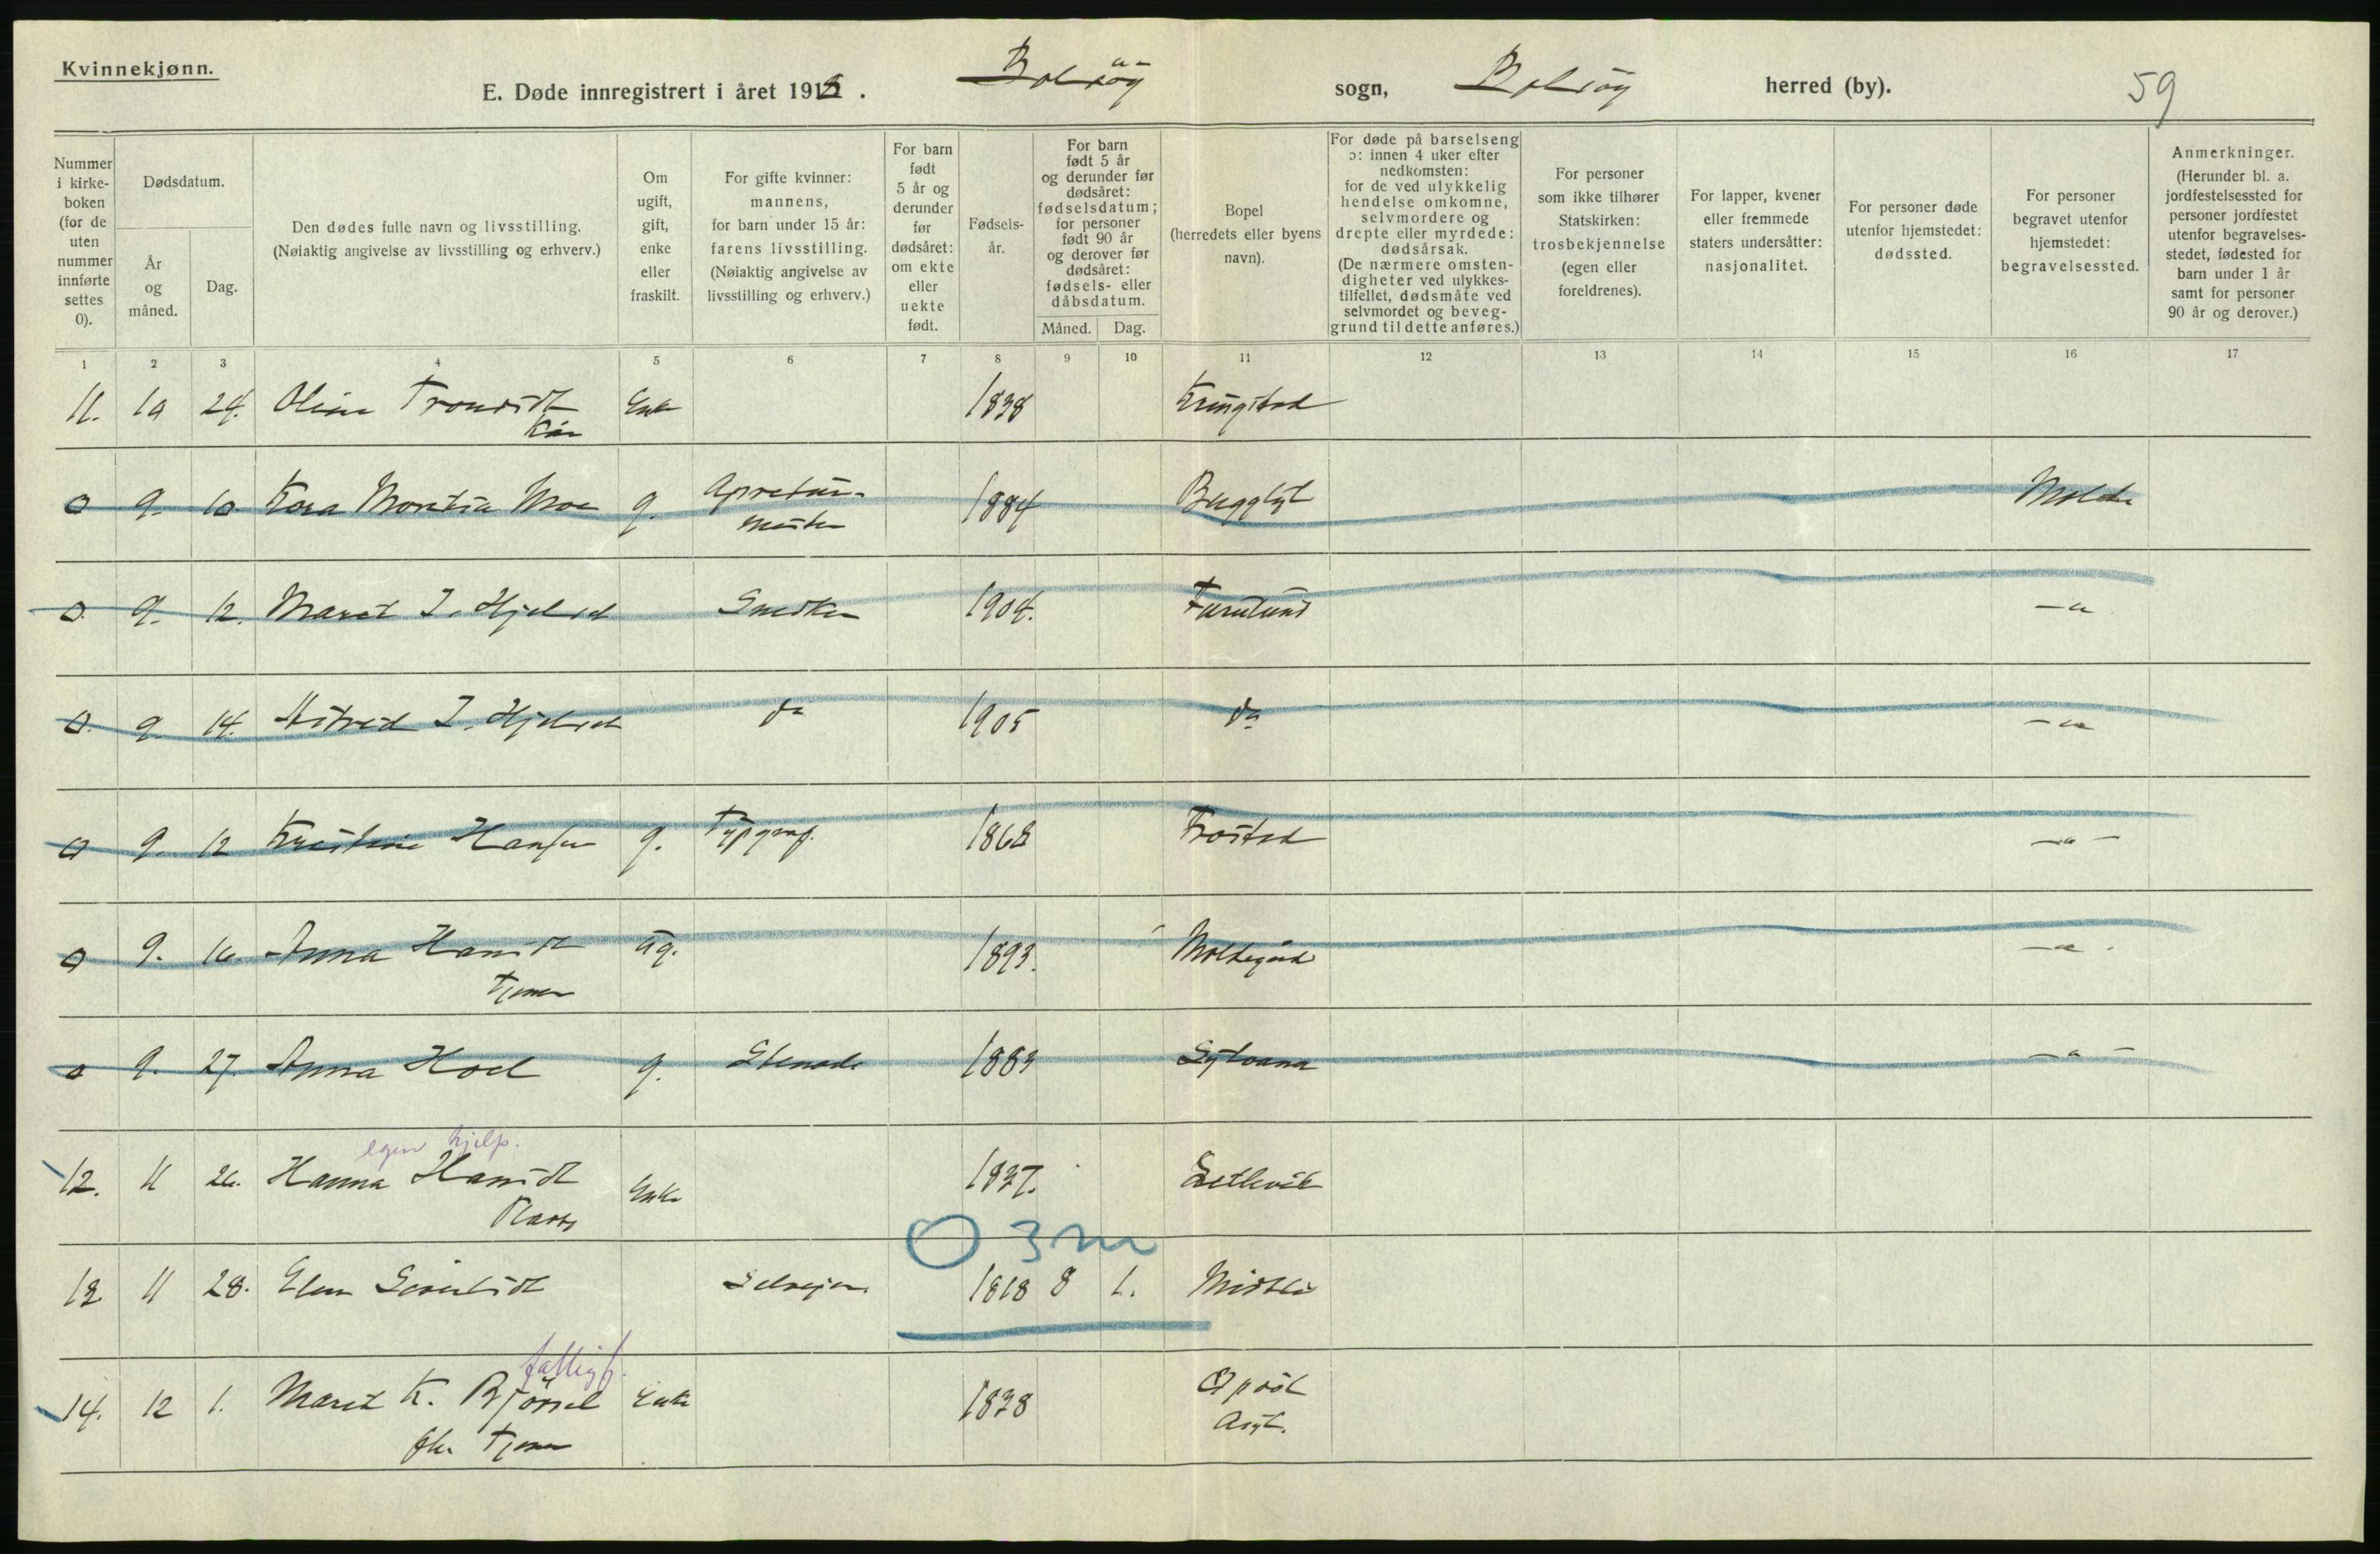 Kvinnekjønn.
E. Døde innregistrert i året 1918. Bolsøy sogn, Bolsøy herred (by). 59
Nummer i kirke-boken (for de uten nummer innførte settes 0).
Dødsdatum.
År og måned.
Dag.
Den dødes fulle navn og livsstilling.
(Nøiaktig angivelse av livsstilling og erhverv.)
Om ugift, gift, enke eller fraskilt.
For gifte kvinner: mannens, for barn under 15 år: farens livsstilling. (Nøiaktig angivelse av livsstilling og erhverv.)
For barn født 5 år og derunder før dødsåret: om ekte eller uekte født.
Fødsels-år.
For barn født 5 år og derunder før dødsåret: fødselsdatum; for personer født 90 år og derover før dødsåret: fødsels- eller dåbsdatum.
Måned. Dag.
Bopel (herredets eller byens navn).
For døde på barselseng ɔ: innen 4 uker efter nedkomsten: for de ved ulykkelig hendelse omkomne, selvmordere og drepte eller myrdede: dødsårsak. (De nærmere omsten-digheter ved ulykkes-tilfellet, dødsmåte ved selvmordet og beveg-grund til dette anføres.)
For personer som ikke tilhører Statskirken: trosbekjennelse (egen eller foreldrenes).
For lapper, kvener eller fremmede staters undersåtter: nasjonalitet.
For personer døde utenfor hjemstedet: dødssted.
For personer begravet utenfor hjemstedet: begravelsessted.
Anmerkninger. (Herunder bl. a. jordfestelsessted for personer jordfestet utenfor begravelses-stedet, fødested for barn under 1 år samt for personer 90 år og derover.)
1 2 3 4 5 6 7 8 9 10 11 12 13 14 15 16 17
11. 10 24. Oline Trondsdt Enke 1838 Kringstad
Kår
0 9. 10. Moe g. Apretur- 1884 Molde
mester
0. 9. 12. Maret J. Hjelset Snedker 1904. Furulund —"
0. 9. 14. Astrid J. Hjelset do 1905 do —"
0 9. 12 Kristine Hansen g. Typograf. 1868 —"—
0 9. 16. Anna Hansdt ug. 1893. Moldegård —"
Tjener
0 9. 27. Anna Hoel g. 1883 Sylvana —"—
egen hjelp.
12. 11 26. Hanna Hansdt Enke 1837.
Plads
O 3 m
13 11 28. Elen Sivertsdt Selveier 1818 8 1. Midtli
fattigf.
14. 12 1. Maret K. Bjørset Enke 1838
fhv. Tjener Asyl.